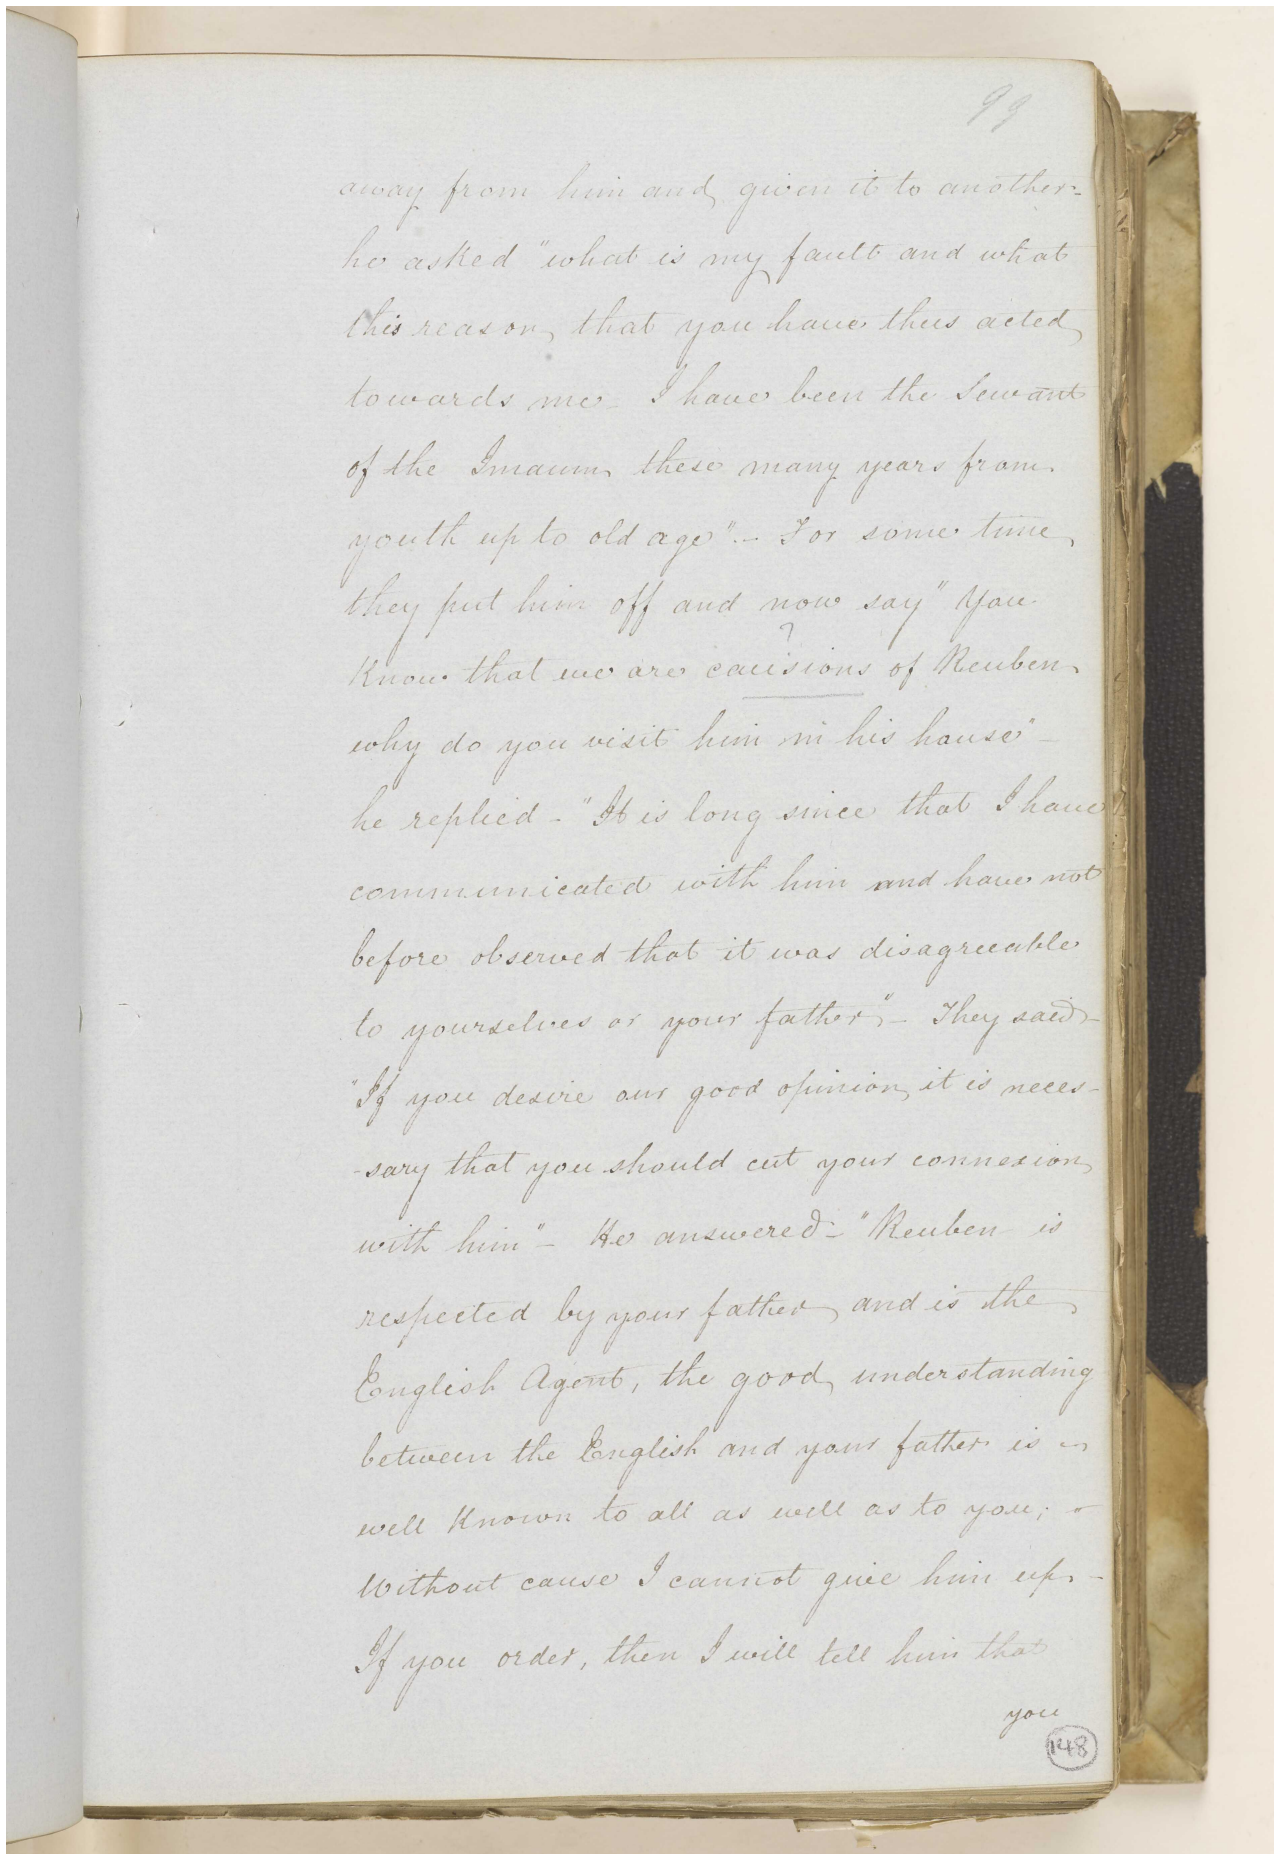 99
away from him and given it to another-
he asked "what is my fault and what
this reason, that you have thus acted
towards me - I have been the Servant
of the Imaum these many years from
youth up to old age" - For some time
they put him off and now say "You
?
know that we are causions of Reuben
why do you visit him in his house" -
he replied - "It is long since that I have
communicated with him and have not
before observed that it was disagreeable
to yourselves or your father" - They said -
"If you desire our good opinion it is neces-
-sary that you should cut your connexion
with him" - He answered - "Reuben is
respected by your father and is the
English Agent, the good understanding
between the English and your father is -
well known to all as well as to you; -
Without cause I cannot give him up -
If you order, then I will tell him that
you
148